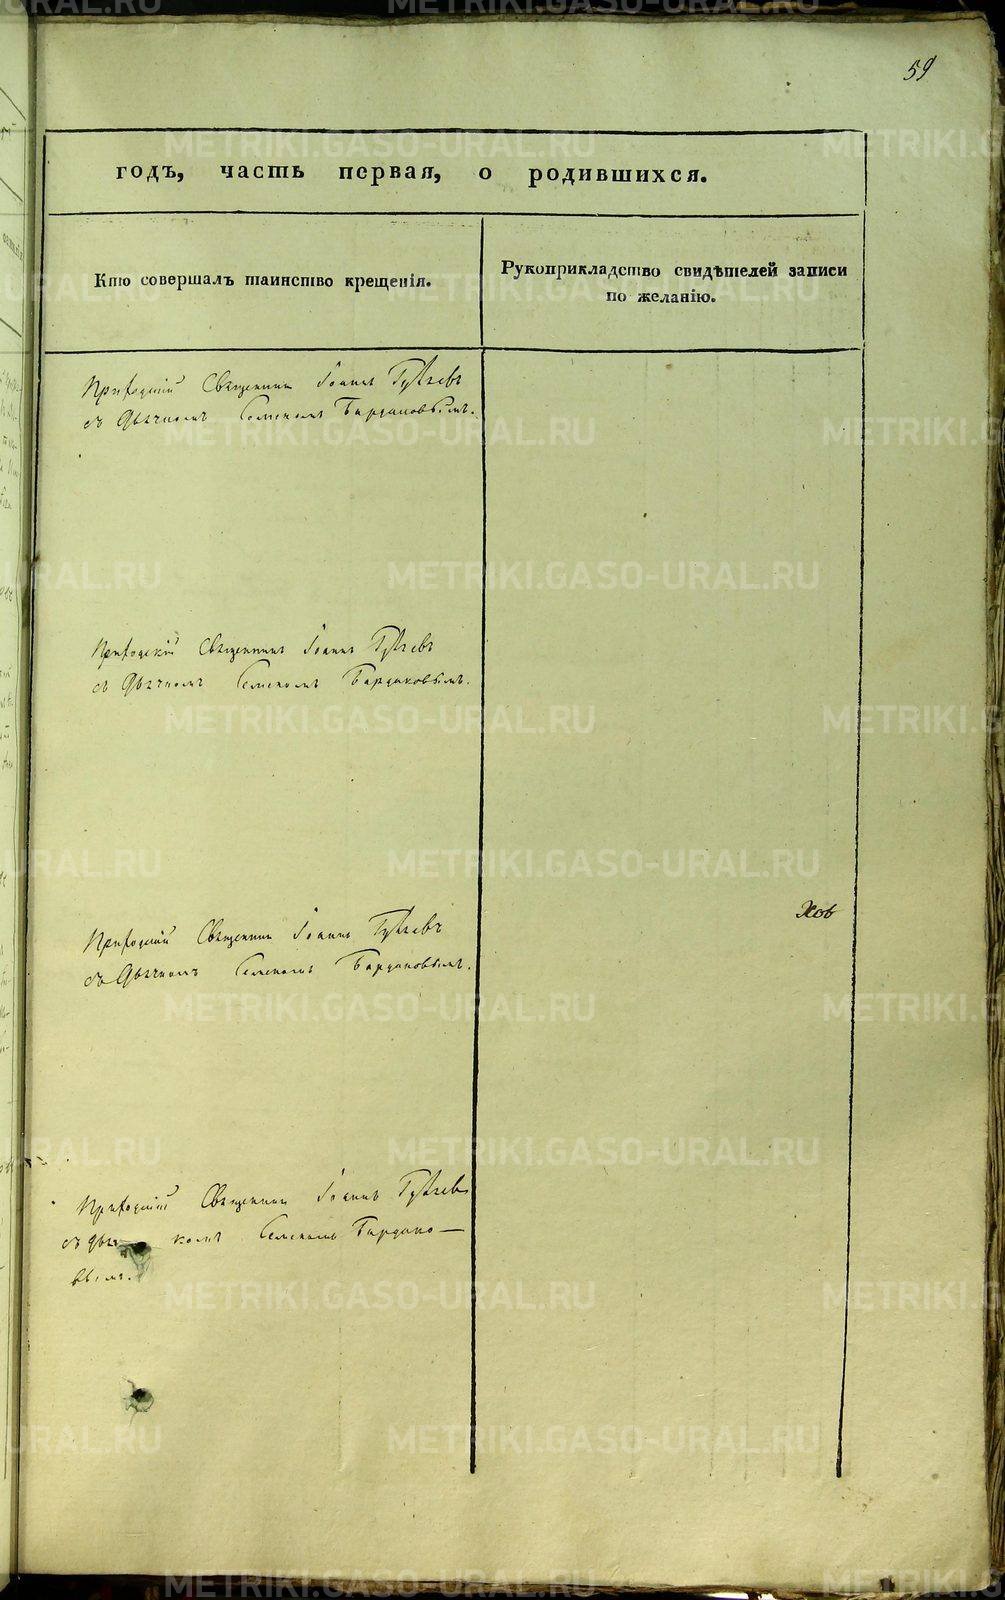 59
годъ, часть первая, о родившихся.
Кто совершалъ таинство крещенія.
Рукоприкладство свидѣтелей записи
по желанію.
Приходскій Священникъ Іоаннъ
съ Дьячкомъ Семеномъ Бардаковымъ.
Приходскій Священникъ Іоаннъ
съ Дьячкомъ Семеномъ Бардаковымъ.
Приходскій Священникъ Іоаннъ
съ Дьячкомъ Семеномъ Бардаковымъ.
Приходскій Священникъ Іоаннъ
съ Дьячкомъ Семеномъ Бардако-
вымъ.
METRIKI.GASO-URAL.RU